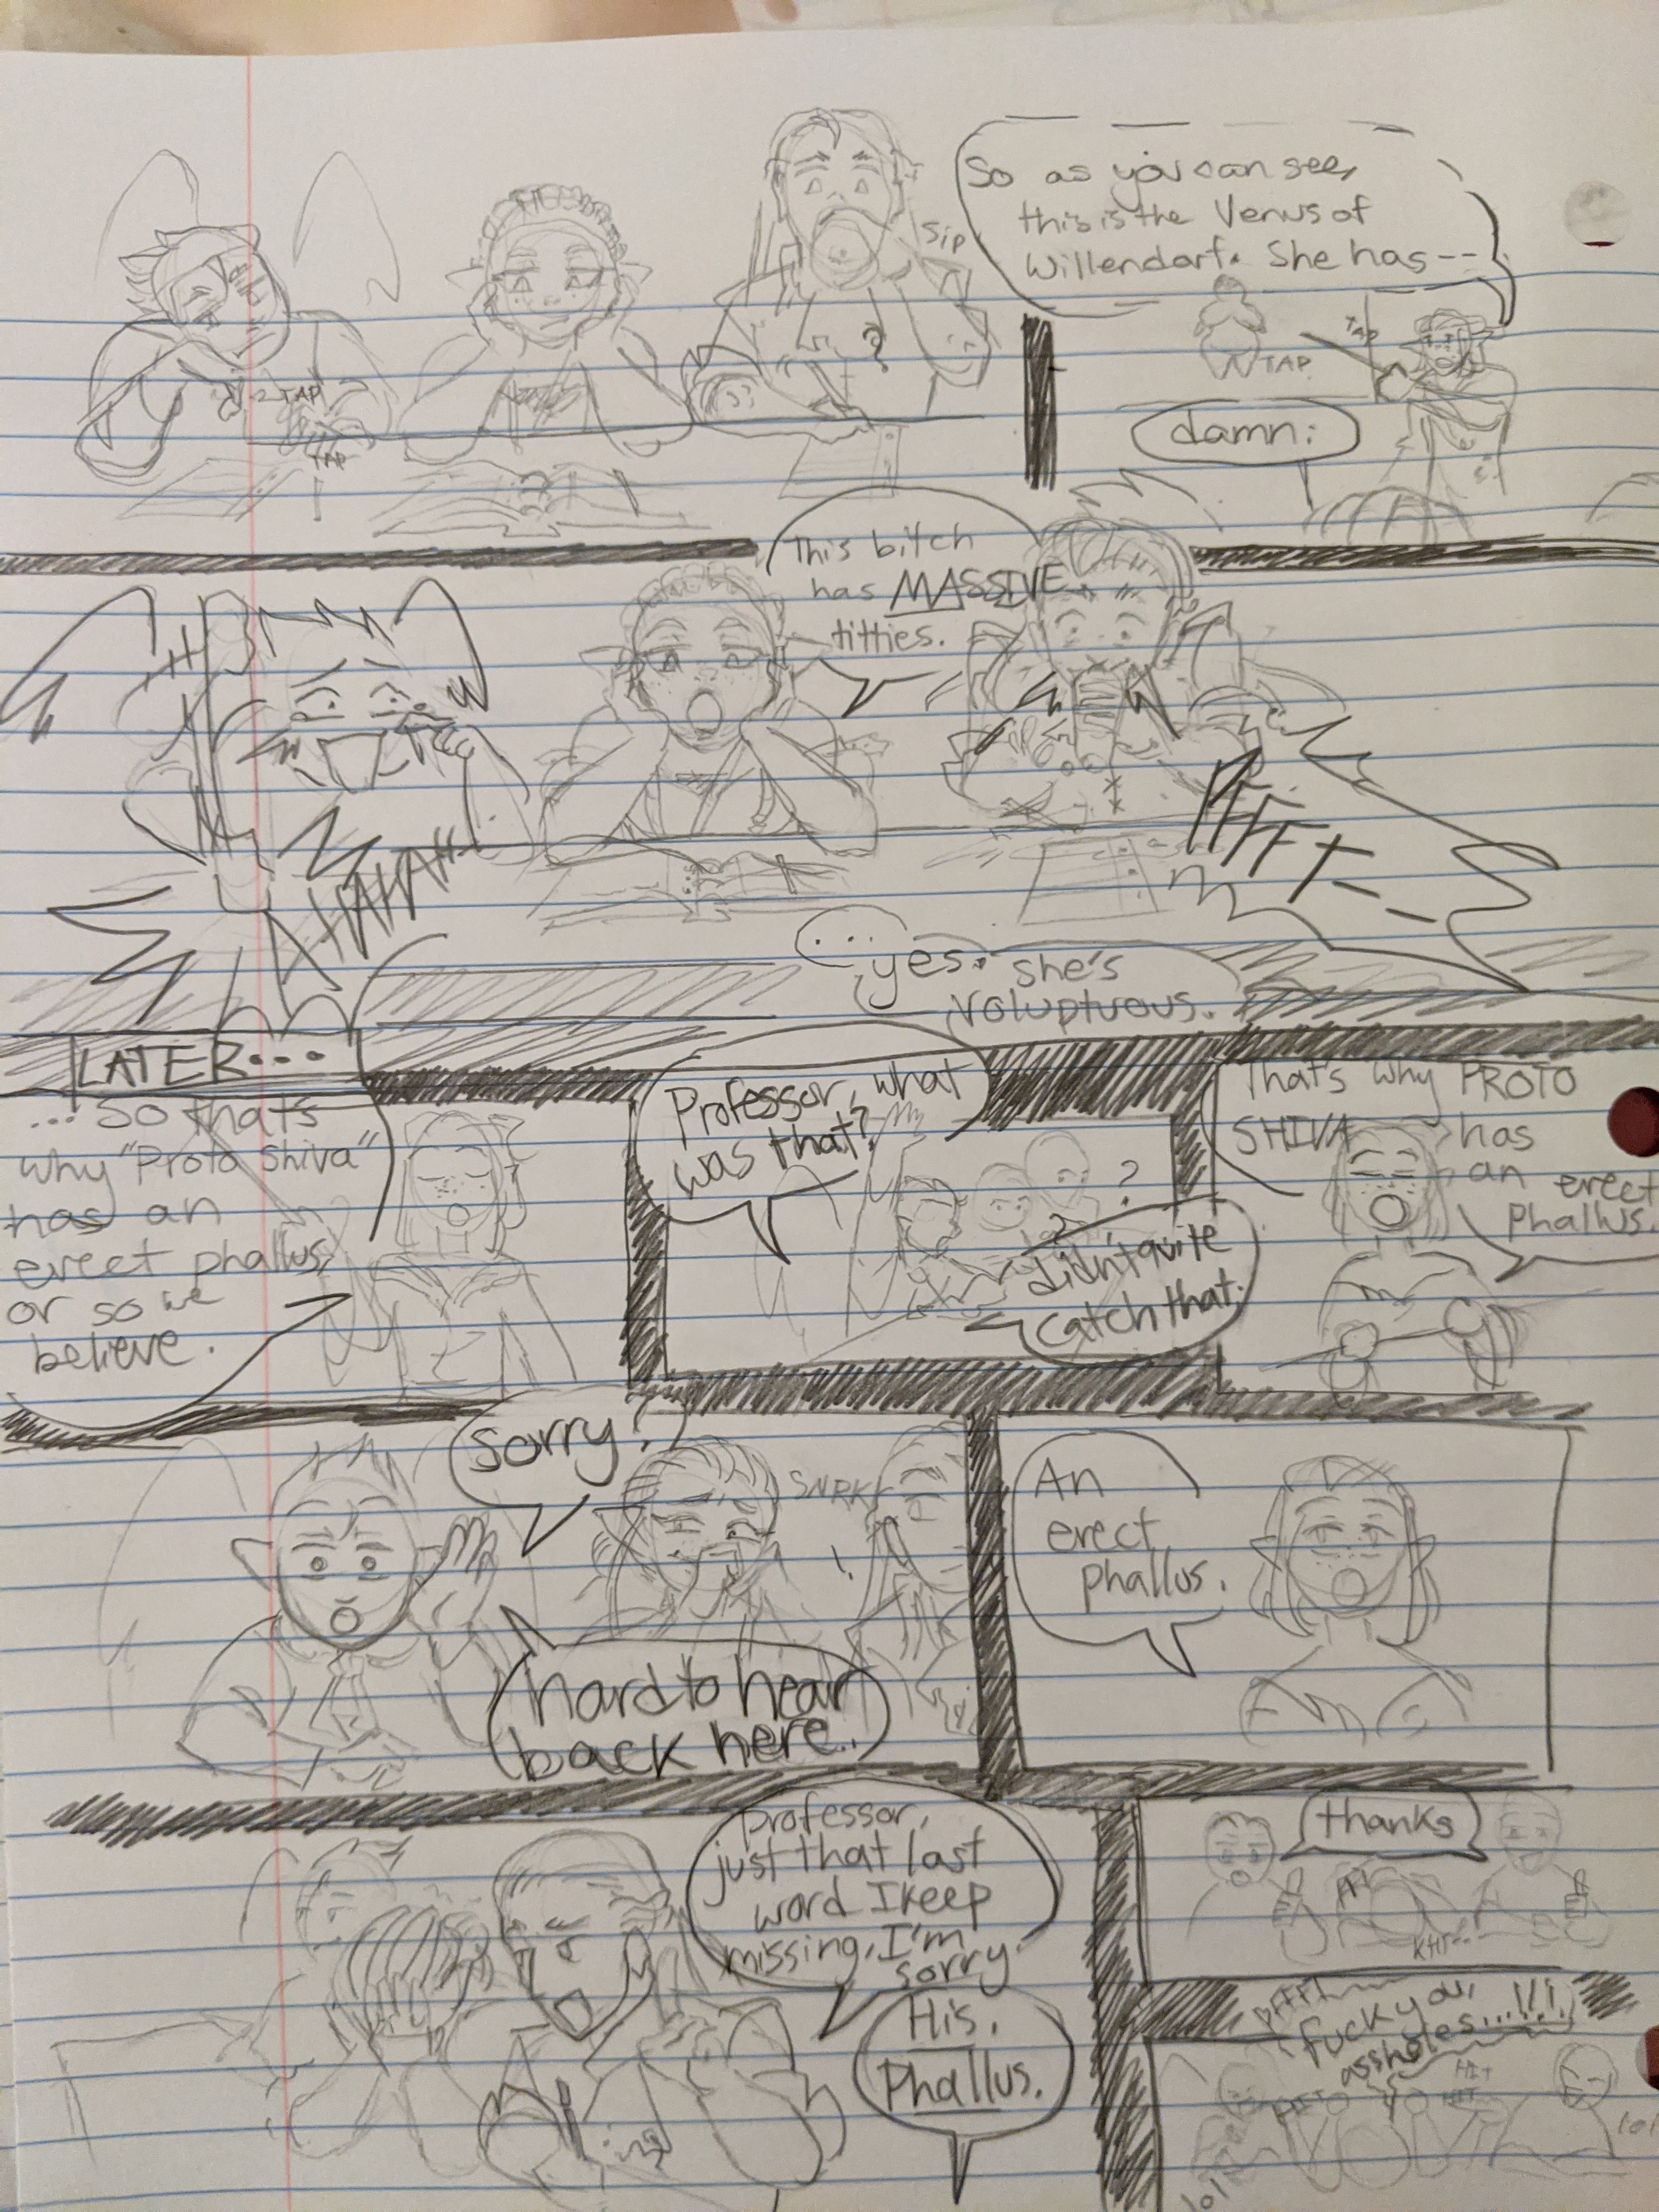 So as you can see,
this is the Venus of
Willendorf. She has--
Sip
TAP
TAP
TAP
TAP
damn.
This bitch
has MASSIVE
titties.
AHAHAHA
PFFFT--
...
yes. she's
voluptuous.
LATER...
... so that's
why "Proto Shiva"
has an
erect phallus,
or so we
believe.
Professor, what
was that?
?
didn't quite
catch that.
That's why PROTO
SHIVA has
an erect
phallus.
Sorry?
SNRK
!
hard to hear
back here..
An
erect
phallus.
professor,
just that last
word I keep
missing, I'm
sorry.
His.
Phallus.
thanks
KHT--
PFFFT
fuck you,
assholes...!!!
HIT
HIT
HIT
lol
lol